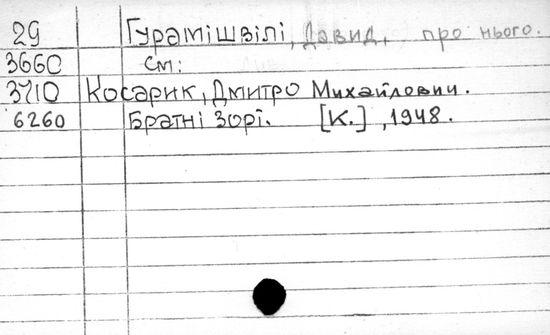 29 Гурамішвілі, Давид, про нього.
3660 См:
3710 Косарик, Дмитро Михайлович.
6260 Братні Зорі. [К.], 1948.